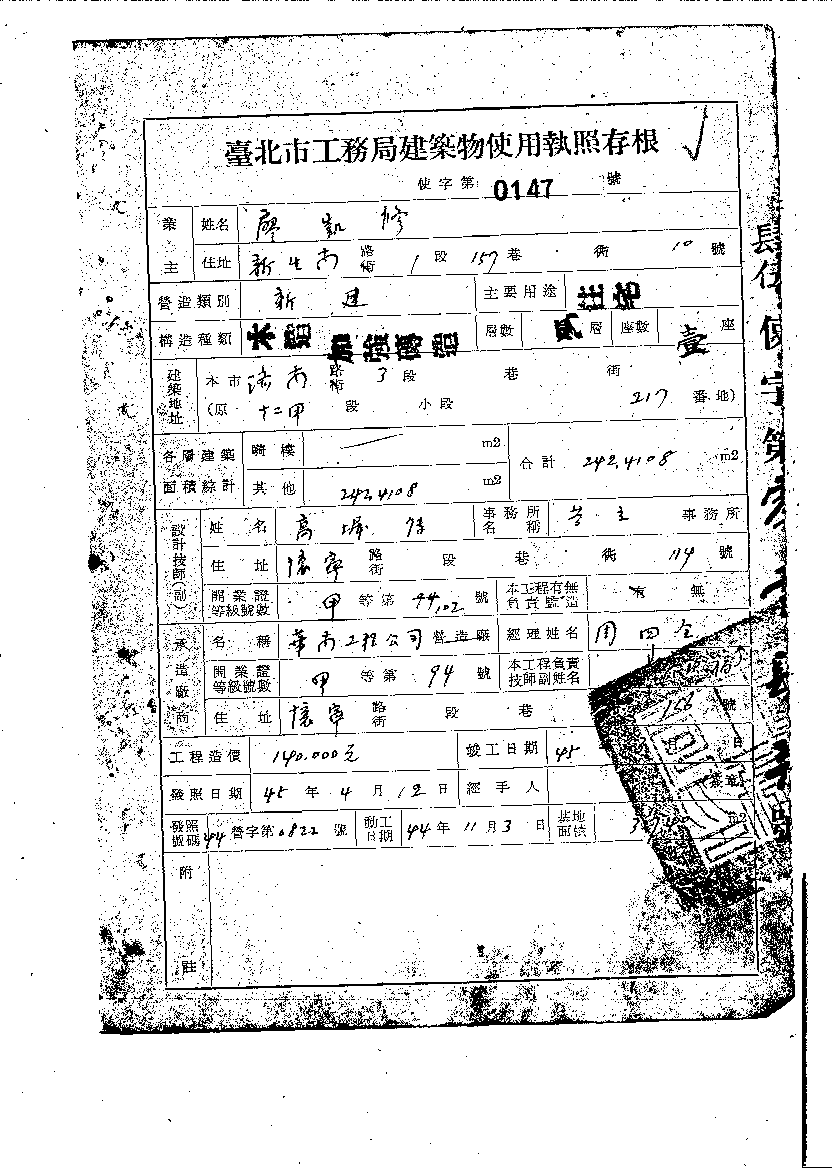 臺北市工務局建築物使用執照存根
使字第 0147 號
業主 姓名 廖凱修
住址 新生南 路街 1 段 157 巷 街 10 號
營造類別 新建 主要用途 住宅
構造種類 木造 加強磚造 層數 貳 層 座數 壹 座
建築地址 本市 路街 3 段 巷 街
(原 十二甲 段 小段 217 番地)
各層建築面積綜計 騎樓 m2 合計 242.4108 m2
其他 242.4108 m2
設計技師(副) 姓名 高 事務所名稱 事務所
住址 懷寧 路街 段 巷 街 114 號
開業證等級號數 甲 等第 號 本工程有無負責監造 有 無
承造廠商 名稱 華南工程公司 營造廠 經理姓名 周四全
開業證等級號數 甲 等第 94 號 本工程負責技師副姓名
住址 懷寧 路街 段 巷 156 號
工程造價 140.000元 竣工日期 45 日
發照日期 45 年 4 月 12 日 經手人
發照號碼 44 營字第 0822 號 動工日期 44 年 11 月 3 日 基地面積 m2
附註
肆伍使字第 號